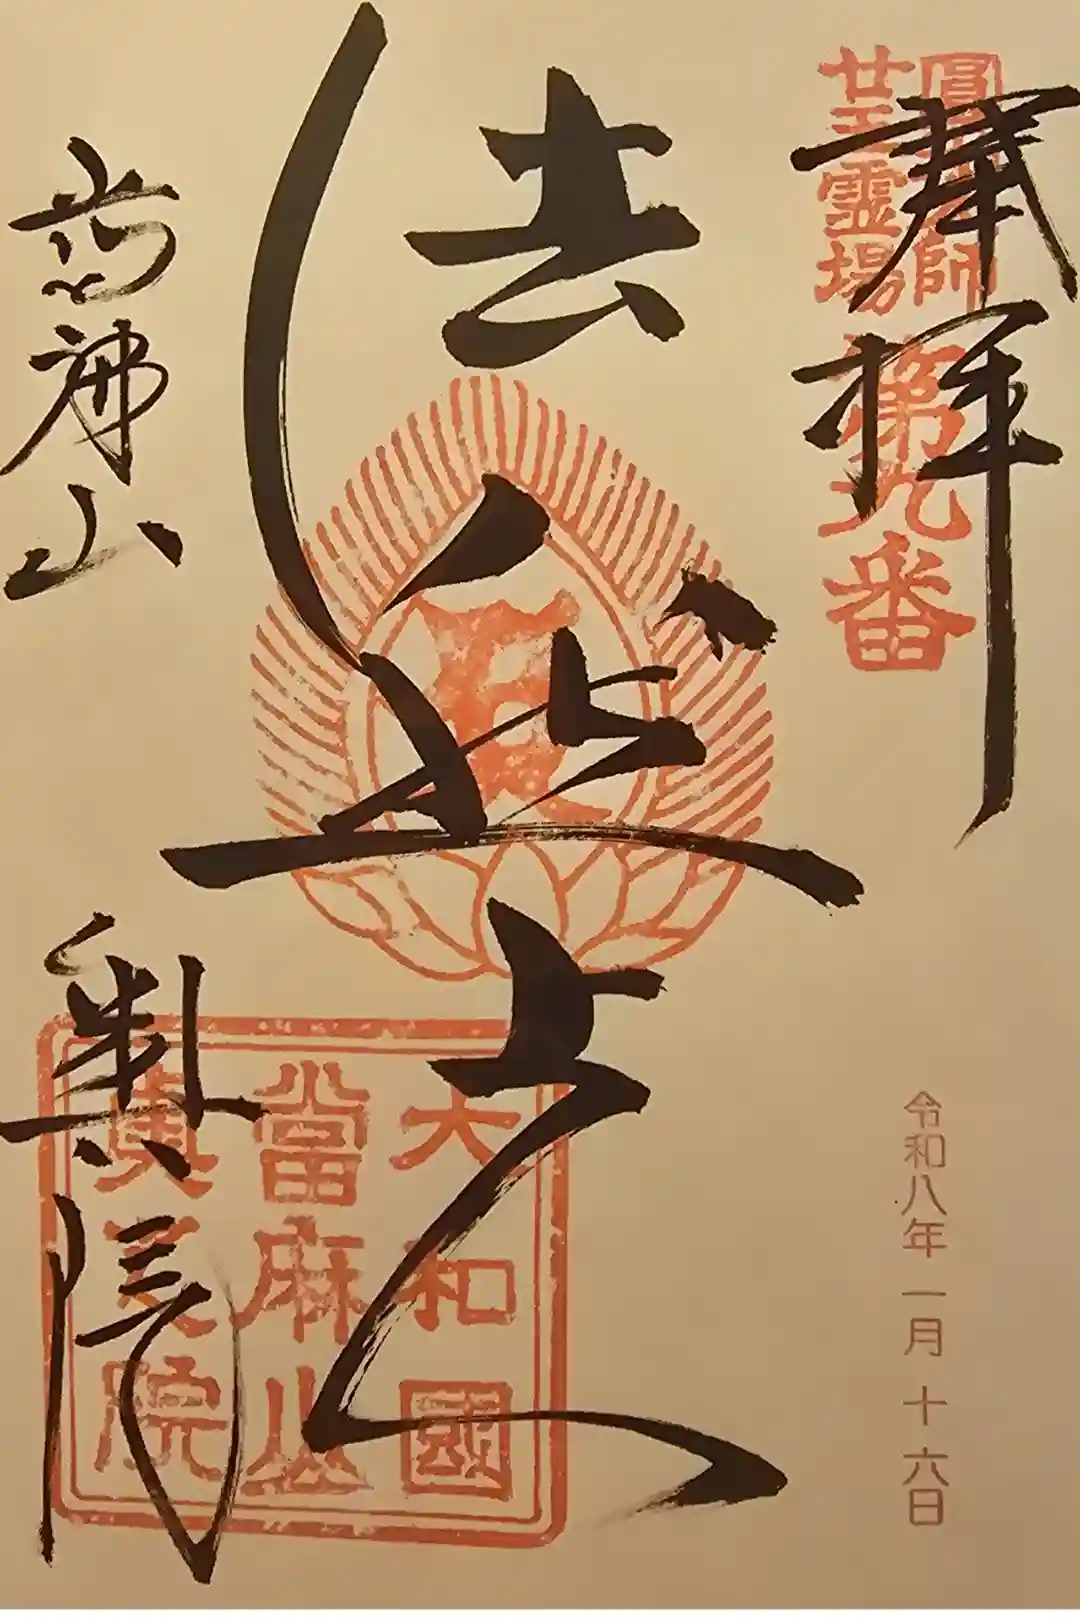 奉拝
圓光大師
廿五霊場
第九番
令和八年一月十六日
法然上人
大和國
當麻山
奥之院
當麻山
奥院